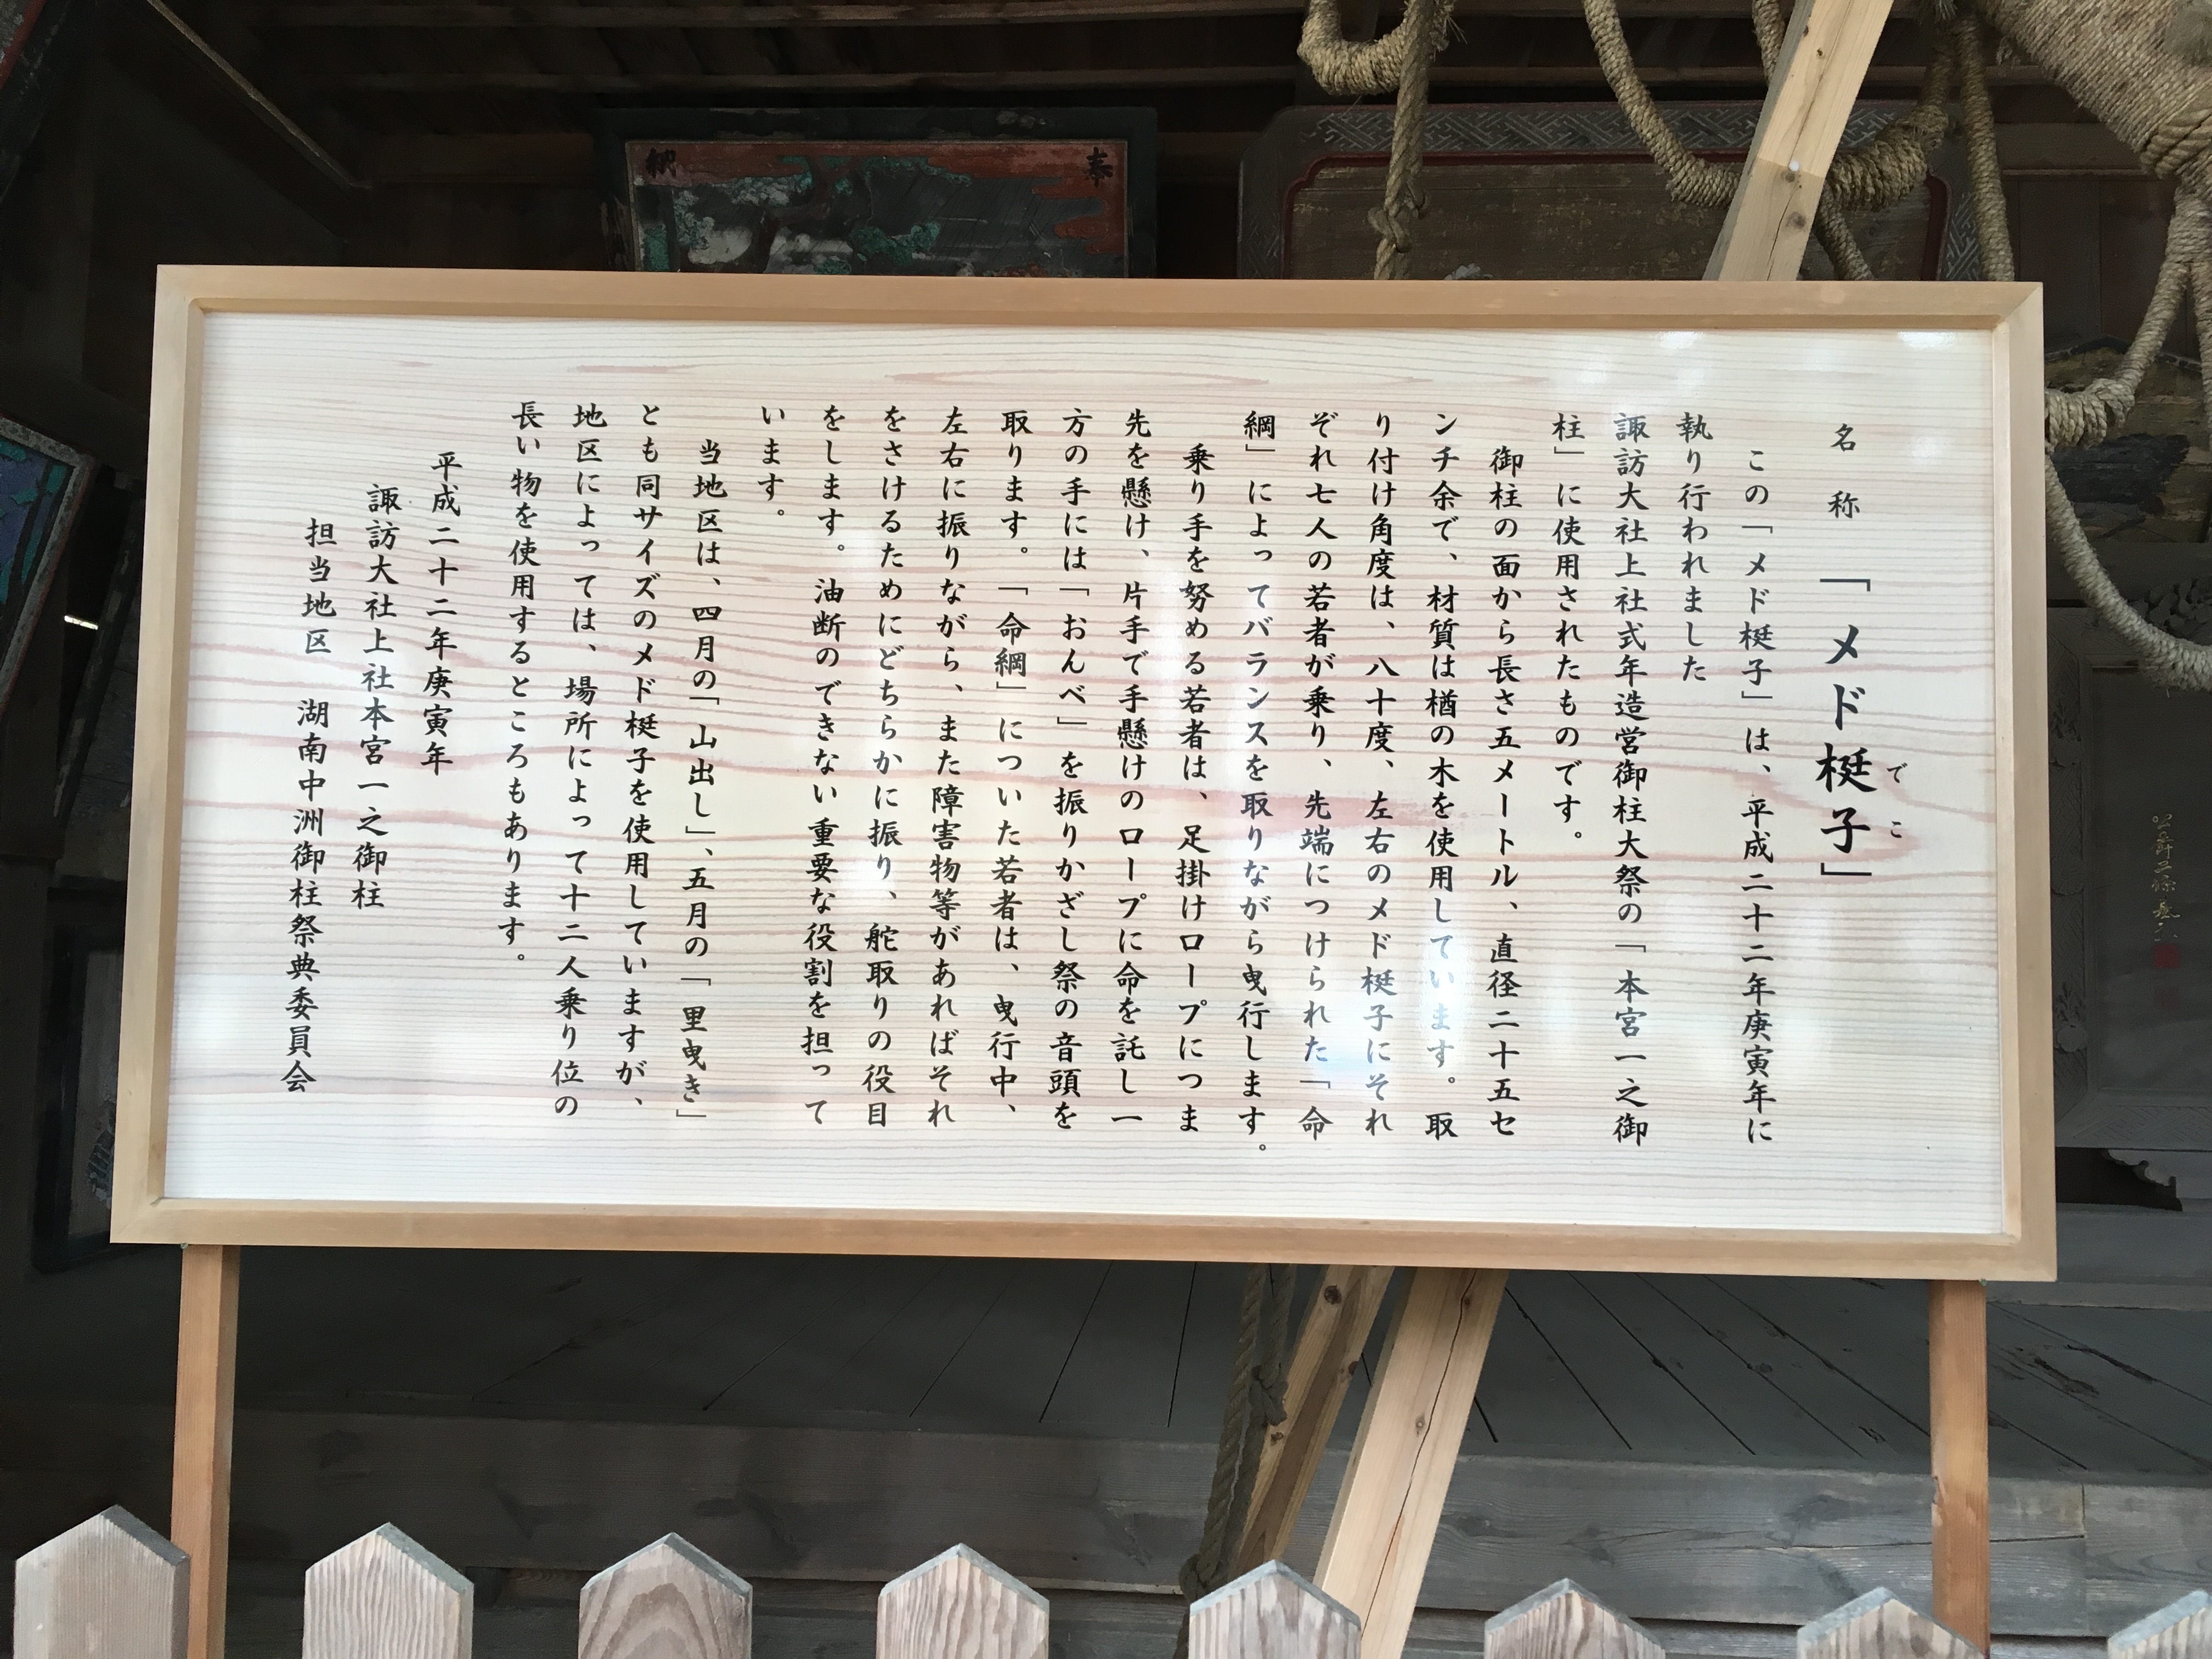 名称「メド梃子」
でこ
この「メド梃子」は、平成二十二年庚寅年に
執り行われました
諏訪大社上社式年造営御柱大祭の「本宮一之御
柱」に使用されたものです。
御柱の面から長さ五メートル、直径二十五セ
ンチ余で、材質は楢の木を使用しています。取
り付け角度は、八十度、左右のメド梃子にそれ
ぞれ七人の若者が乗り、先端につけられた「命
綱」によってバランスを取りながら曳行します。
乗り手を努める若者は、足掛けロープにつま
先を懸け、片手で手懸けのロープに命を託し一
方の手には「おんべ」を振りかざし祭の音頭を
取ります。「命綱」についた若者は、曳行中、
左右に振りながら、また障害物等があればそれ
をさけるためにどちらかに振り、舵取りの役目
をします。油断のできない重要な役割を担って
います。
当地区は、四月の「山出し」、五月の「里曳き」
とも同サイズのメド梃子を使用していますが、
地区によっては、場所によって十二人乗り位の
長い物を使用するところもあります。
平成二十二年庚寅年
諏訪大社上社本宮一之御柱
担当地区 湖南中洲御柱祭典委員会
奉納